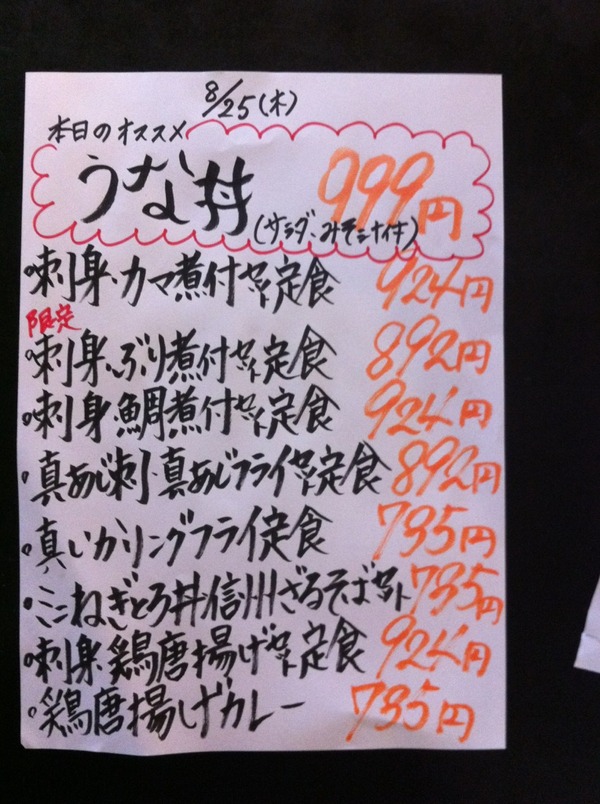 8/25(木)
本日のオススメ
うな丼 999円
(サラダ、みそシル付)
・刺身、カマ煮付セット定食 924円
限定
・刺身、ぶり煮付セット定食 892円
・刺身、鯛煮付セット定食 924円
・真あじ刺、真あじフライセット定食 892円
・真いかリングフライ定食 735円
・ミニねぎとろ丼信州ざるそばセット 735円
・刺身、鶏唐揚げセット定食 924円
・鶏唐揚げカレー 735円